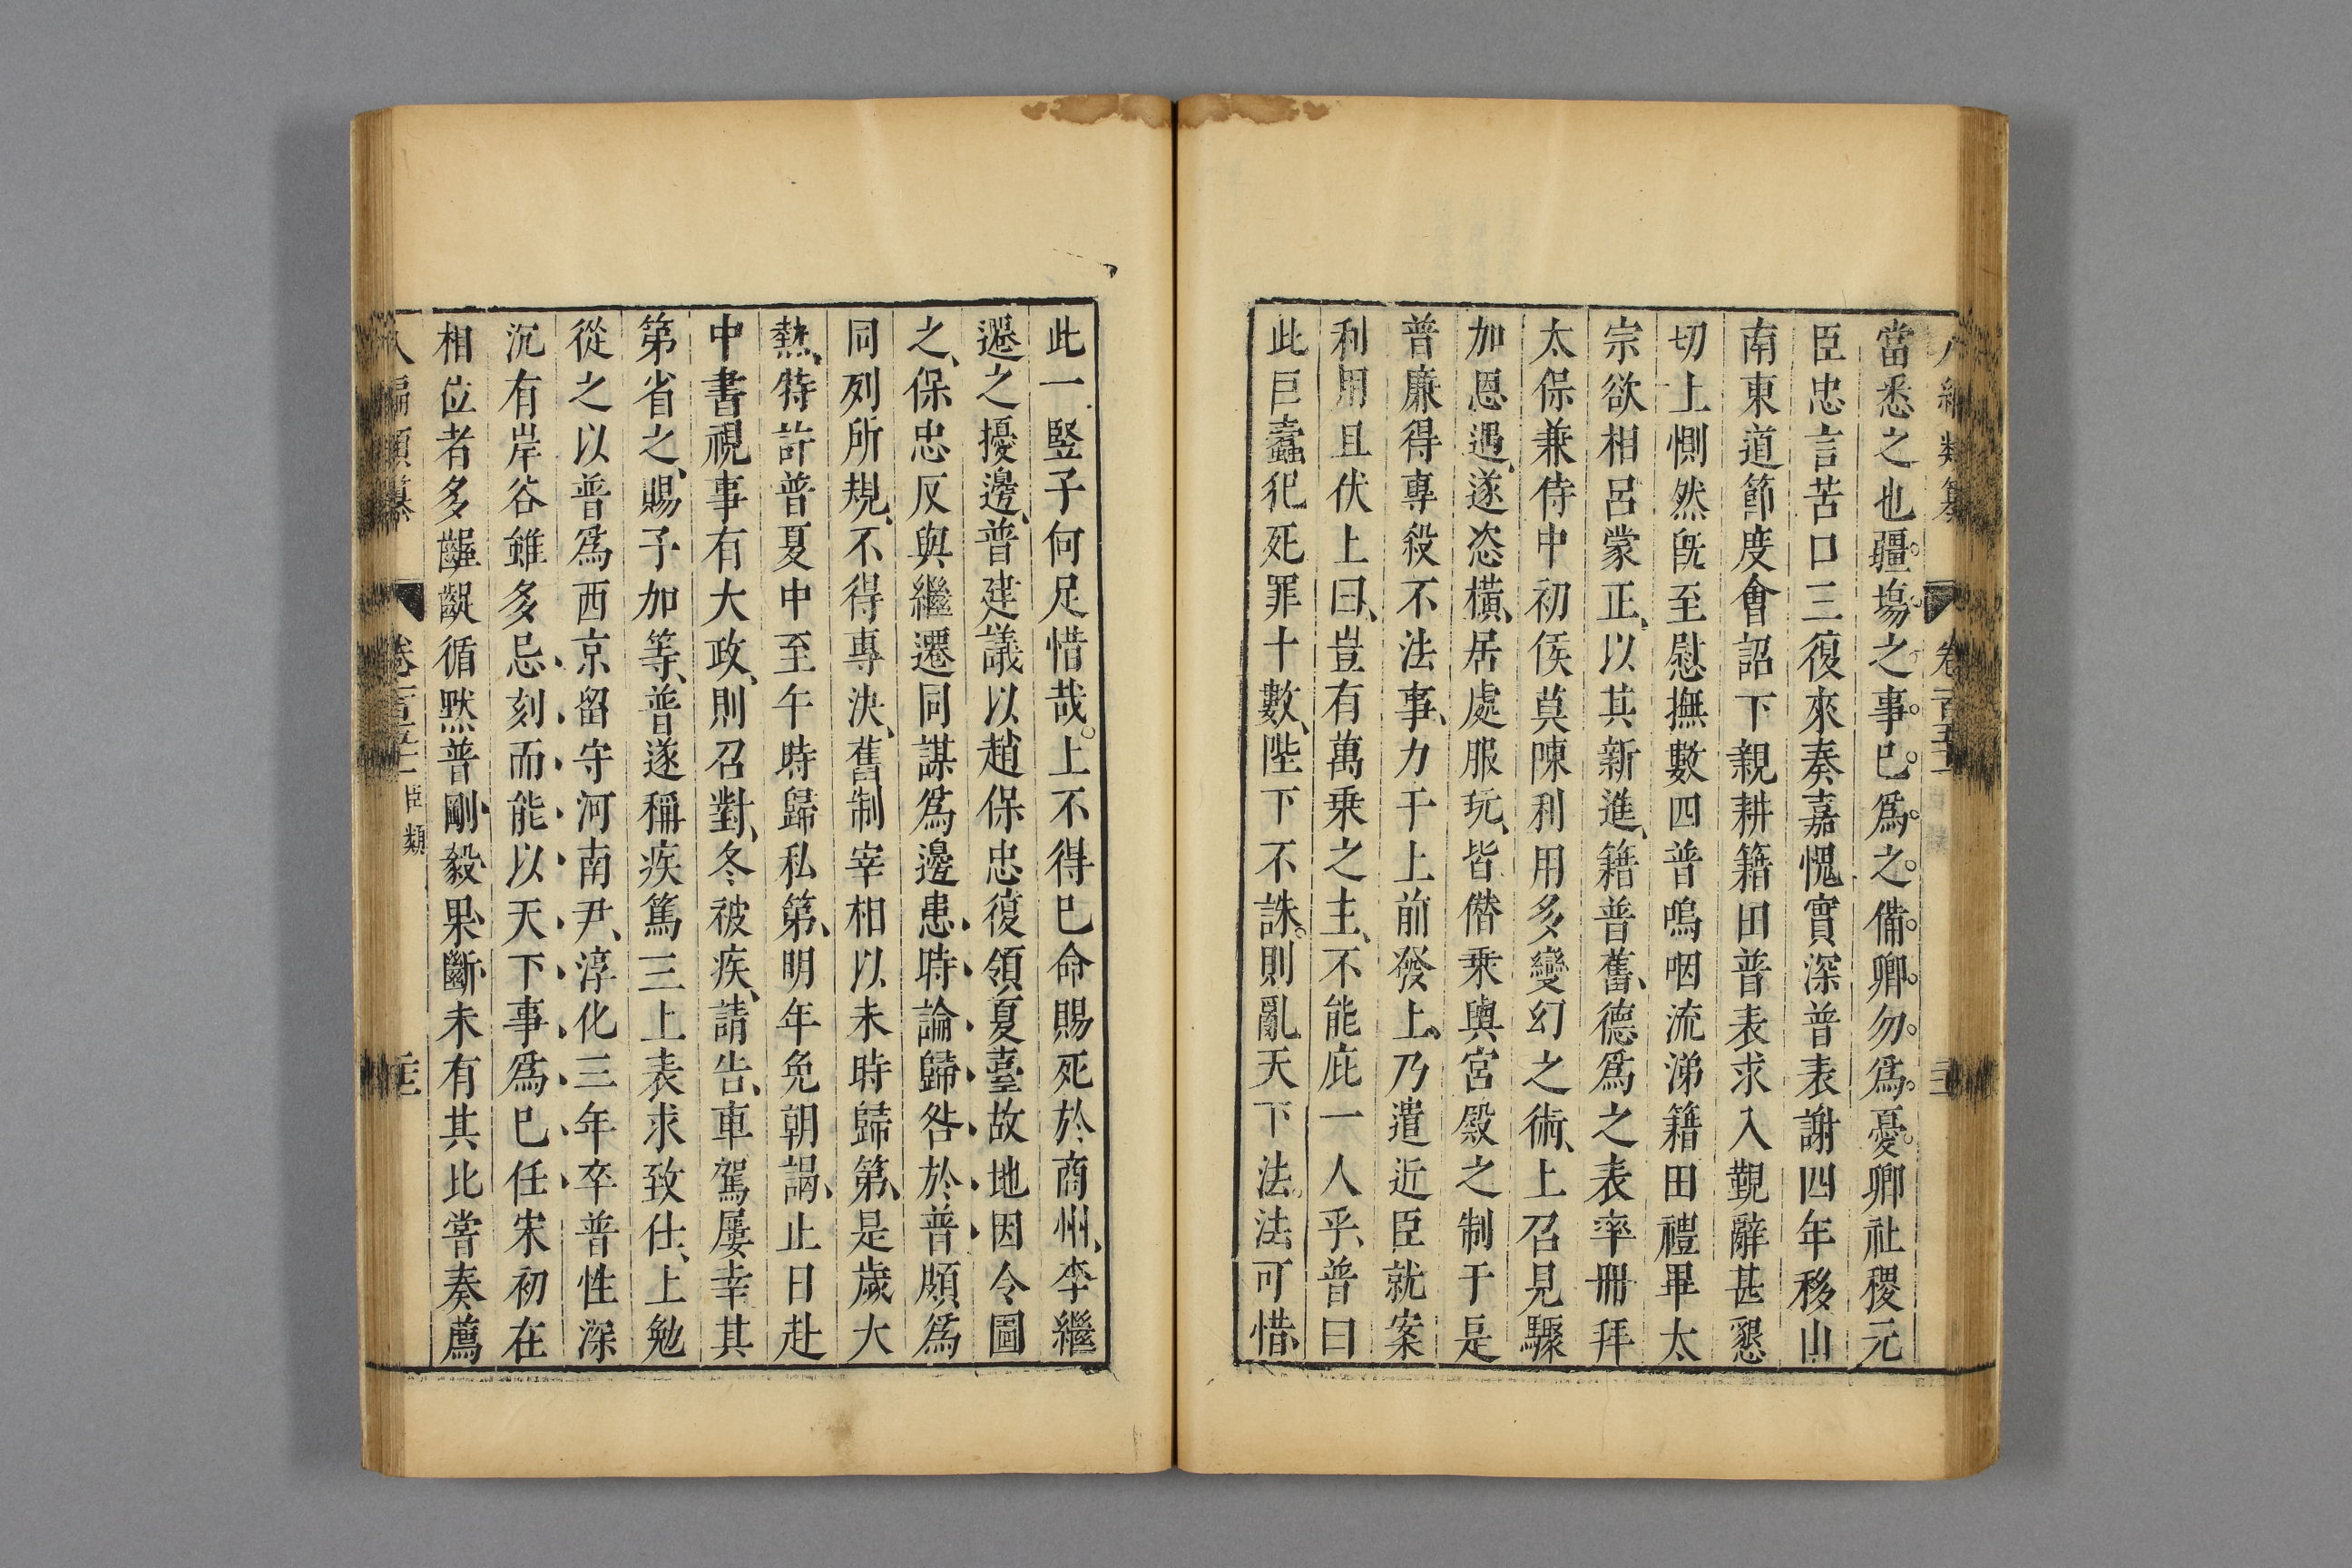 當悉之也疆塲之事已爲之備卿勿爲憂卿社稷元
臣忠言苦口三復來奏嘉愧實深普表謝四年移山
南東道節度會詔下親耕籍田普表求入覲辭甚懇
切上惻然旣至慰撫數四普嗚咽流涕籍田禮畢太
宗欲相呂蒙正以其新進籍普舊德爲之表率冊拜
太保兼侍中初侯莫陳利用多變幻之術上召見驟
加恩遇遂恣橫居處服玩皆僭乘輿宮殿之制于是
普廉得專殺不法事力于上前發上乃遣近臣就案
利用且伏上曰豈有萬乘之主不能庇一人乎普曰
此巨蠹犯死罪十數陛下不誅則亂天下法法可惜
此一竪子何足惜哉上不得已命賜死於商州李繼
遷之擾邊普建議以趙保忠復領夏臺故地因令圖
之保忠反與繼遷同謀爲邊患時論歸咎於普頗爲
同列所規不得專決舊制宰相以未時歸第是歲大
熱特許普夏中至午時歸私第明年免朝謁止日赴
中書視事有大政則召對冬被疾請告車駕屢幸其
第省之賜予加等普遂稱疾篤三上表求致仕上勉
從之以普爲西京留守河南尹淳化三年卒普性深
沉有岸谷雖多忌刻而能以天下事爲已任宋初在
相位者多齷齪循默普剛毅果斷未有其比嘗奏薦
八編類纂 卷一百五十一 臣類